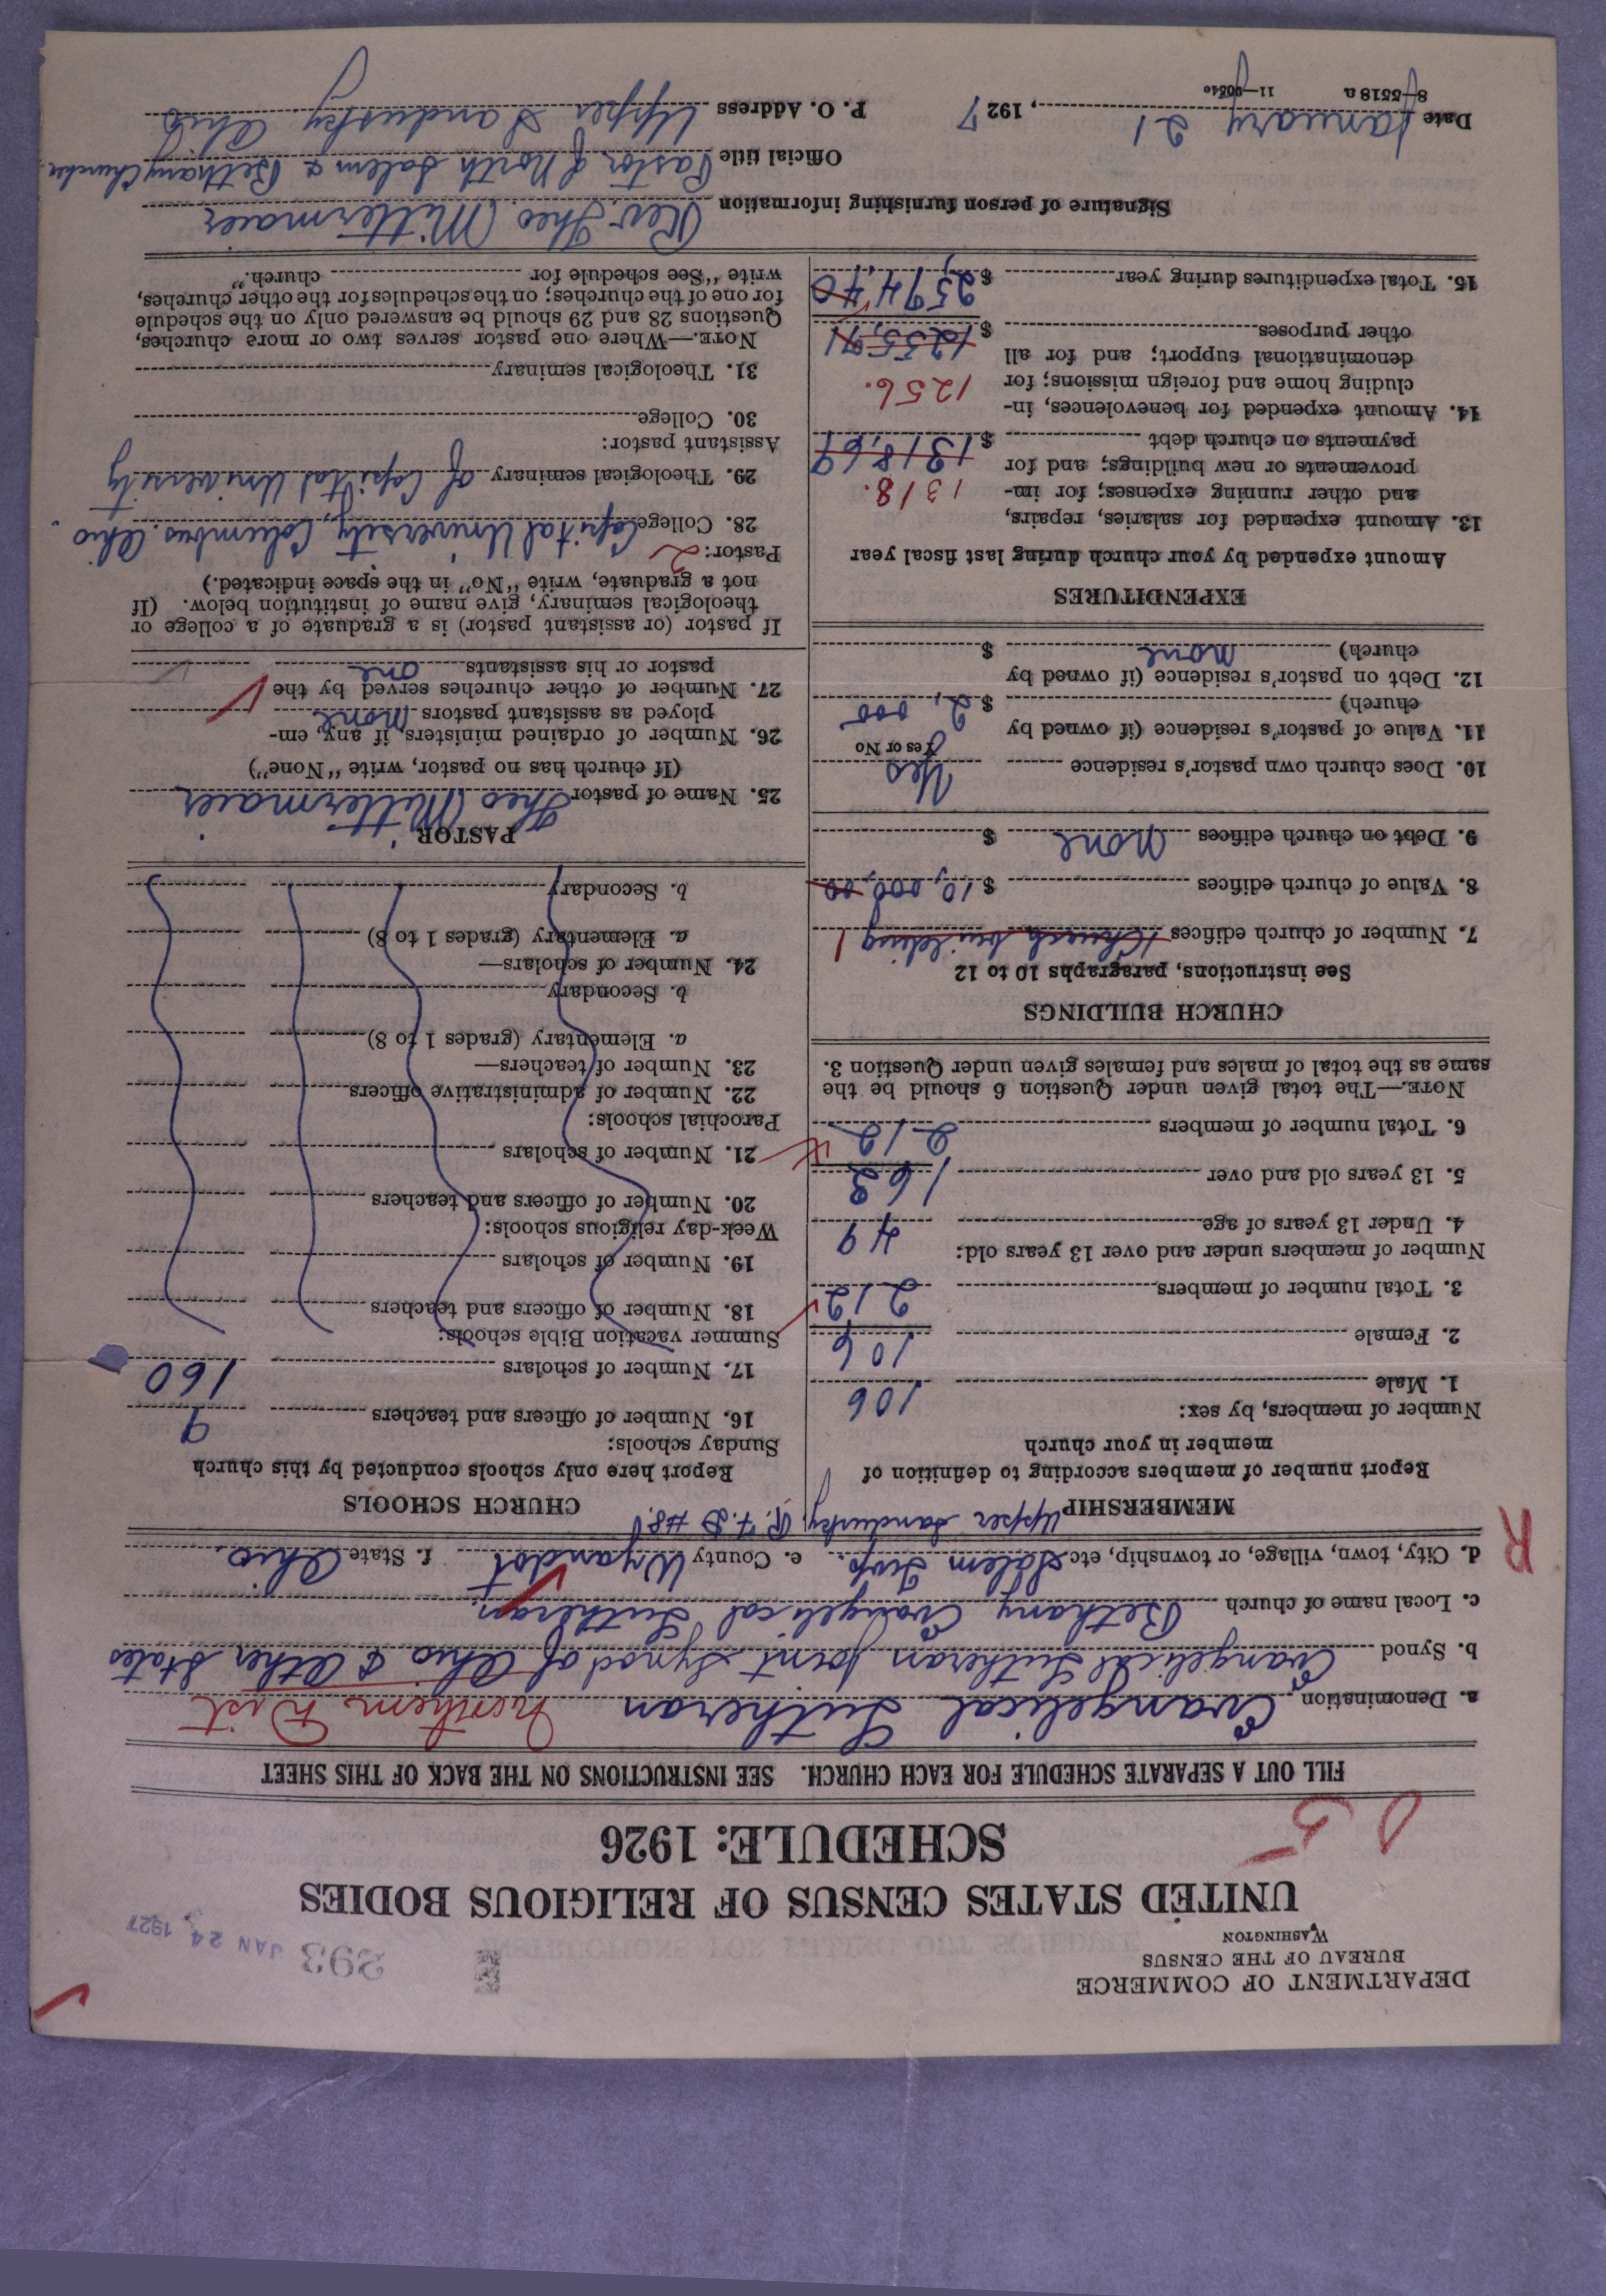 DEPARTMENT OF COMMERCE
BUREAU OF THE CENSUS
WASHINGTON
393 JAN 24 1927
UNITED STATES CENSUS OF RELIGIOUS BODIES
SCHEDULE: 1926
FILL OUT A SEPARATE SCHEDULE FOR EACH CHURCH. SEE INSTRUCTIONS ON THE BACK OF THIS SHEET
a. Denomination Evangelical Lutheran Northern Dist
b. Synod Evangelical Lutheran Joint Synod of Ohio & Other States
c. Local name of church Bethany Evangelical Lutheran.
d. City, town, village, or township, etc Salem Twp. e. County Wyandot f. State Ohio.
Upper Sandusky R.F.D #8.
R
MEMBERSHIP
Report number of members according to definition of
member in your church
Number of members, by sex:
1. Male 106
2. Female 106
3. Total number of members 212
Number of members under and over 13 years old:
4. Under 13 years of age 49
5. 13 years old and over 163
6. Total number of members 212
NOTE.—The total given under Question 6 should be the
same as the total of males and females given under Question 3.
CHURCH BUILDINGS
See instructions, paragraphs 10 to 12
7. Number of church edifices 1 Church building 1
8. Value of church edifices $ 10,000,00
9. Debt on church edifices none $
10. Does church own pastor's residence Yes
Yes or No
11. Value of pastor's residence (if owned by
church) $ 2,000
12. Debt on pastor's residence (if owned by
church) none $
EXPENDITURES
Amount expended by your church during last fiscal year
13. Amount expended for salaries, repairs,
and other running expenses; for im- 1318.
provements or new buildings; and for
payments on church debt $ 1318,69
14. Amount expended for benevolences, in-
cluding home and foreign missions; for 1256.
denominational support; and for all
other purposes $ 1255,71
15. Total expenditures during year $ 2574,40
CHURCH SCHOOLS
Report here only schools conducted by this church
Sunday schools:
16. Number of officers and teachers 9
17. Number of scholars 160
Summer vacation Bible schools:
18. Number of officers and teachers
19. Number of scholars
Week-day religious schools:
20. Number of officers and teachers
21. Number of scholars
Parochial schools:
22. Number of administrative officers
23. Number of teachers—
a. Elementary (grades 1 to 8)
b. Secondary
24. Number of scholars—
a. Elementary (grades 1 to 8)
b. Secondary
PASTOR
25. Name of pastor Theo Mittermaier
(If church has no pastor, write "None")
26. Number of ordained ministers, if any, em-
ployed as assistant pastors none
27. Number of other churches served by the
pastor or his assistants one
If pastor (or assistant pastor) is a graduate of a college or
theological seminary, give name of institution below. (If
not a graduate, write "No" in the space indicated.)
Pastor: 2
28. College Capital University, Columbus, Ohio.
29. Theological seminary of Capital University
Assistant pastor:
30. College
31. Theological seminary
NOTE.—Where one pastor serves two or more churches,
Questions 28 and 29 should be answered only on the schedule
for one of the churches; on the schedules for the other churches,
write "See schedule for church."
Signature of person furnishing information Rev. Theo Mittermaier
Official title Pastor of North Salem & Bethany Churches
Date January 21, 1927 P. O. Address Upper Sandusky Ohio
8—5518 a